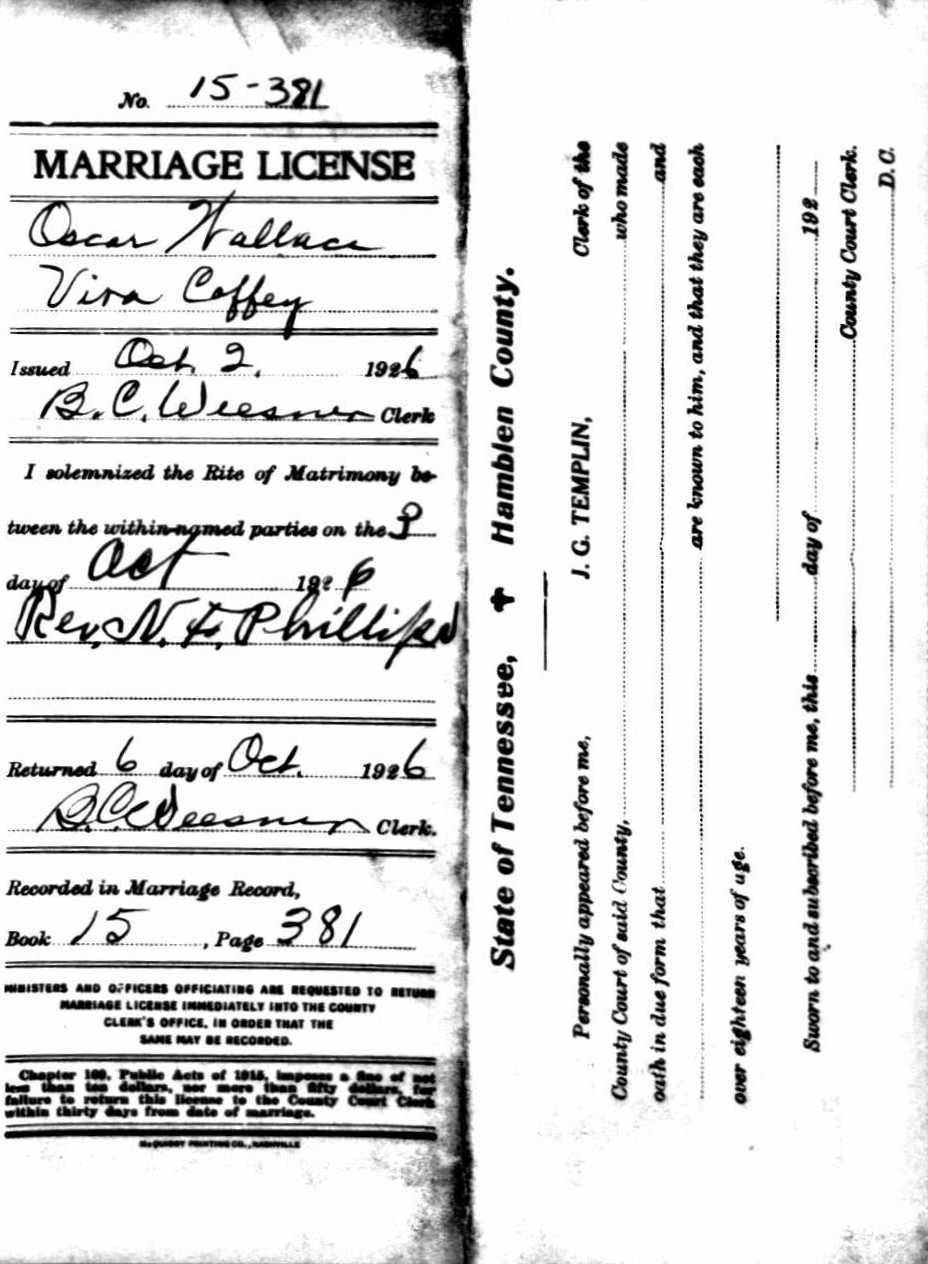 No. 15-381
MARRIAGE LICENSE
Oscar Wallace
Vira Coffey
Issued Oct. 2, 1926
B. C. Weesner Clerk
I solemnized the Rite of Matrimony be-
tween the within-named parties on the 3
day of Oct 1926
Rev. N. F. Phillips
Returned 6 day of Oct. 1926
B. C. Weesner Clerk.
Recorded in Marriage Record,
Book 15, Page 381
MINISTERS AND OFFICERS OFFICIATING ARE REQUESTED TO RETURN
MARRIAGE LICENSE IMMEDIATELY INTO THE COUNTY
CLERK'S OFFICE, IN ORDER THAT THE
SAME MAY BE RECORDED.
Chapter 109, Public Acts of 1915, imposes a fine of not
less than ten dollars, nor more than fifty dollars, for
failure to return this license to the County Court Clerk
within thirty days from date of marriage.
McQUIDDY PRINTING CO., NASHVILLE
State of Tennessee, Hamblen County.
Personally appeared before me, J. G. TEMPLIN, Clerk of the
County Court of said County, who made
oath in due form that and
are known to him, and that they are each
over eighteen years of age.
Sworn to and subscribed before me, this day of 192
County Court Clerk.
D. C.